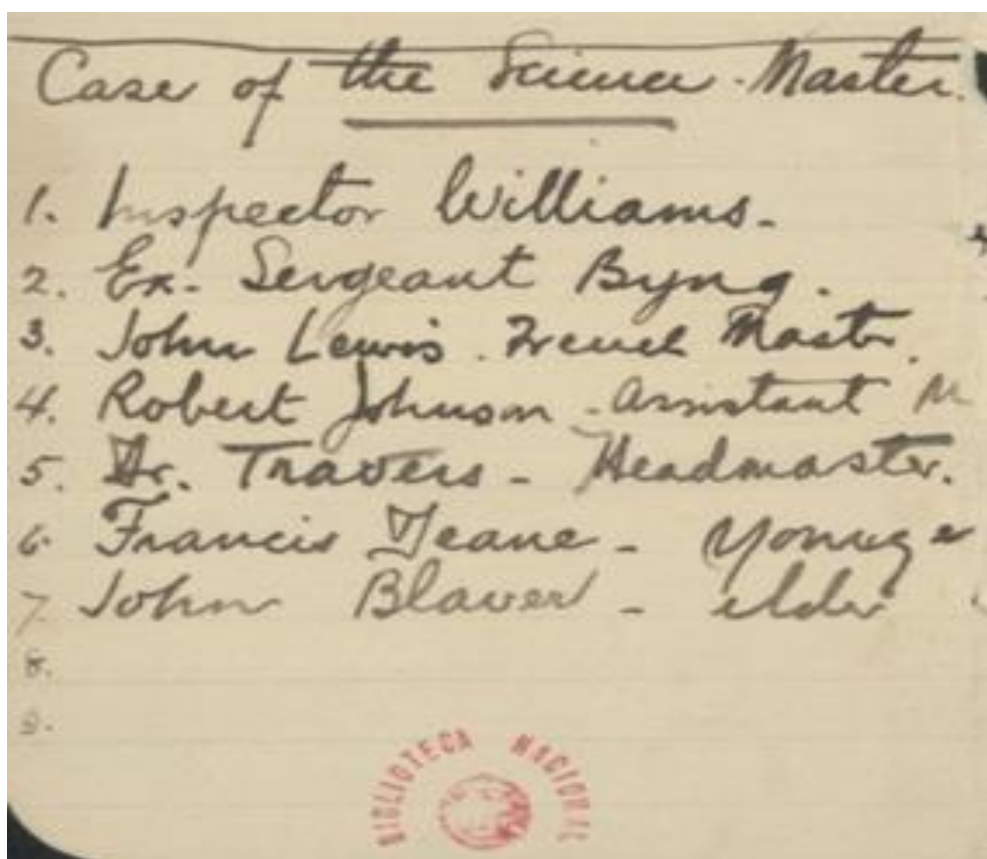 Case of the Science Master.
1. Inspector Williams.
2. Ex-Sergeant Byng.
3. John Lewis. French Master.
4. Robert Johnson - Assistant M
5. Dr. Travers - Headmaster.
6. Francis Deane - Younge
7. John Blaver - elder
8.
9.
BIBLIOTECA NACIONAL